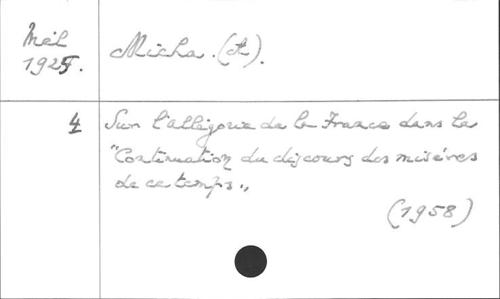 Mél
1925.
Micha. (A).
4
Sur l'allégorie de la France dans la
"Continuation du discours des misères
de ce temps"
(1958)